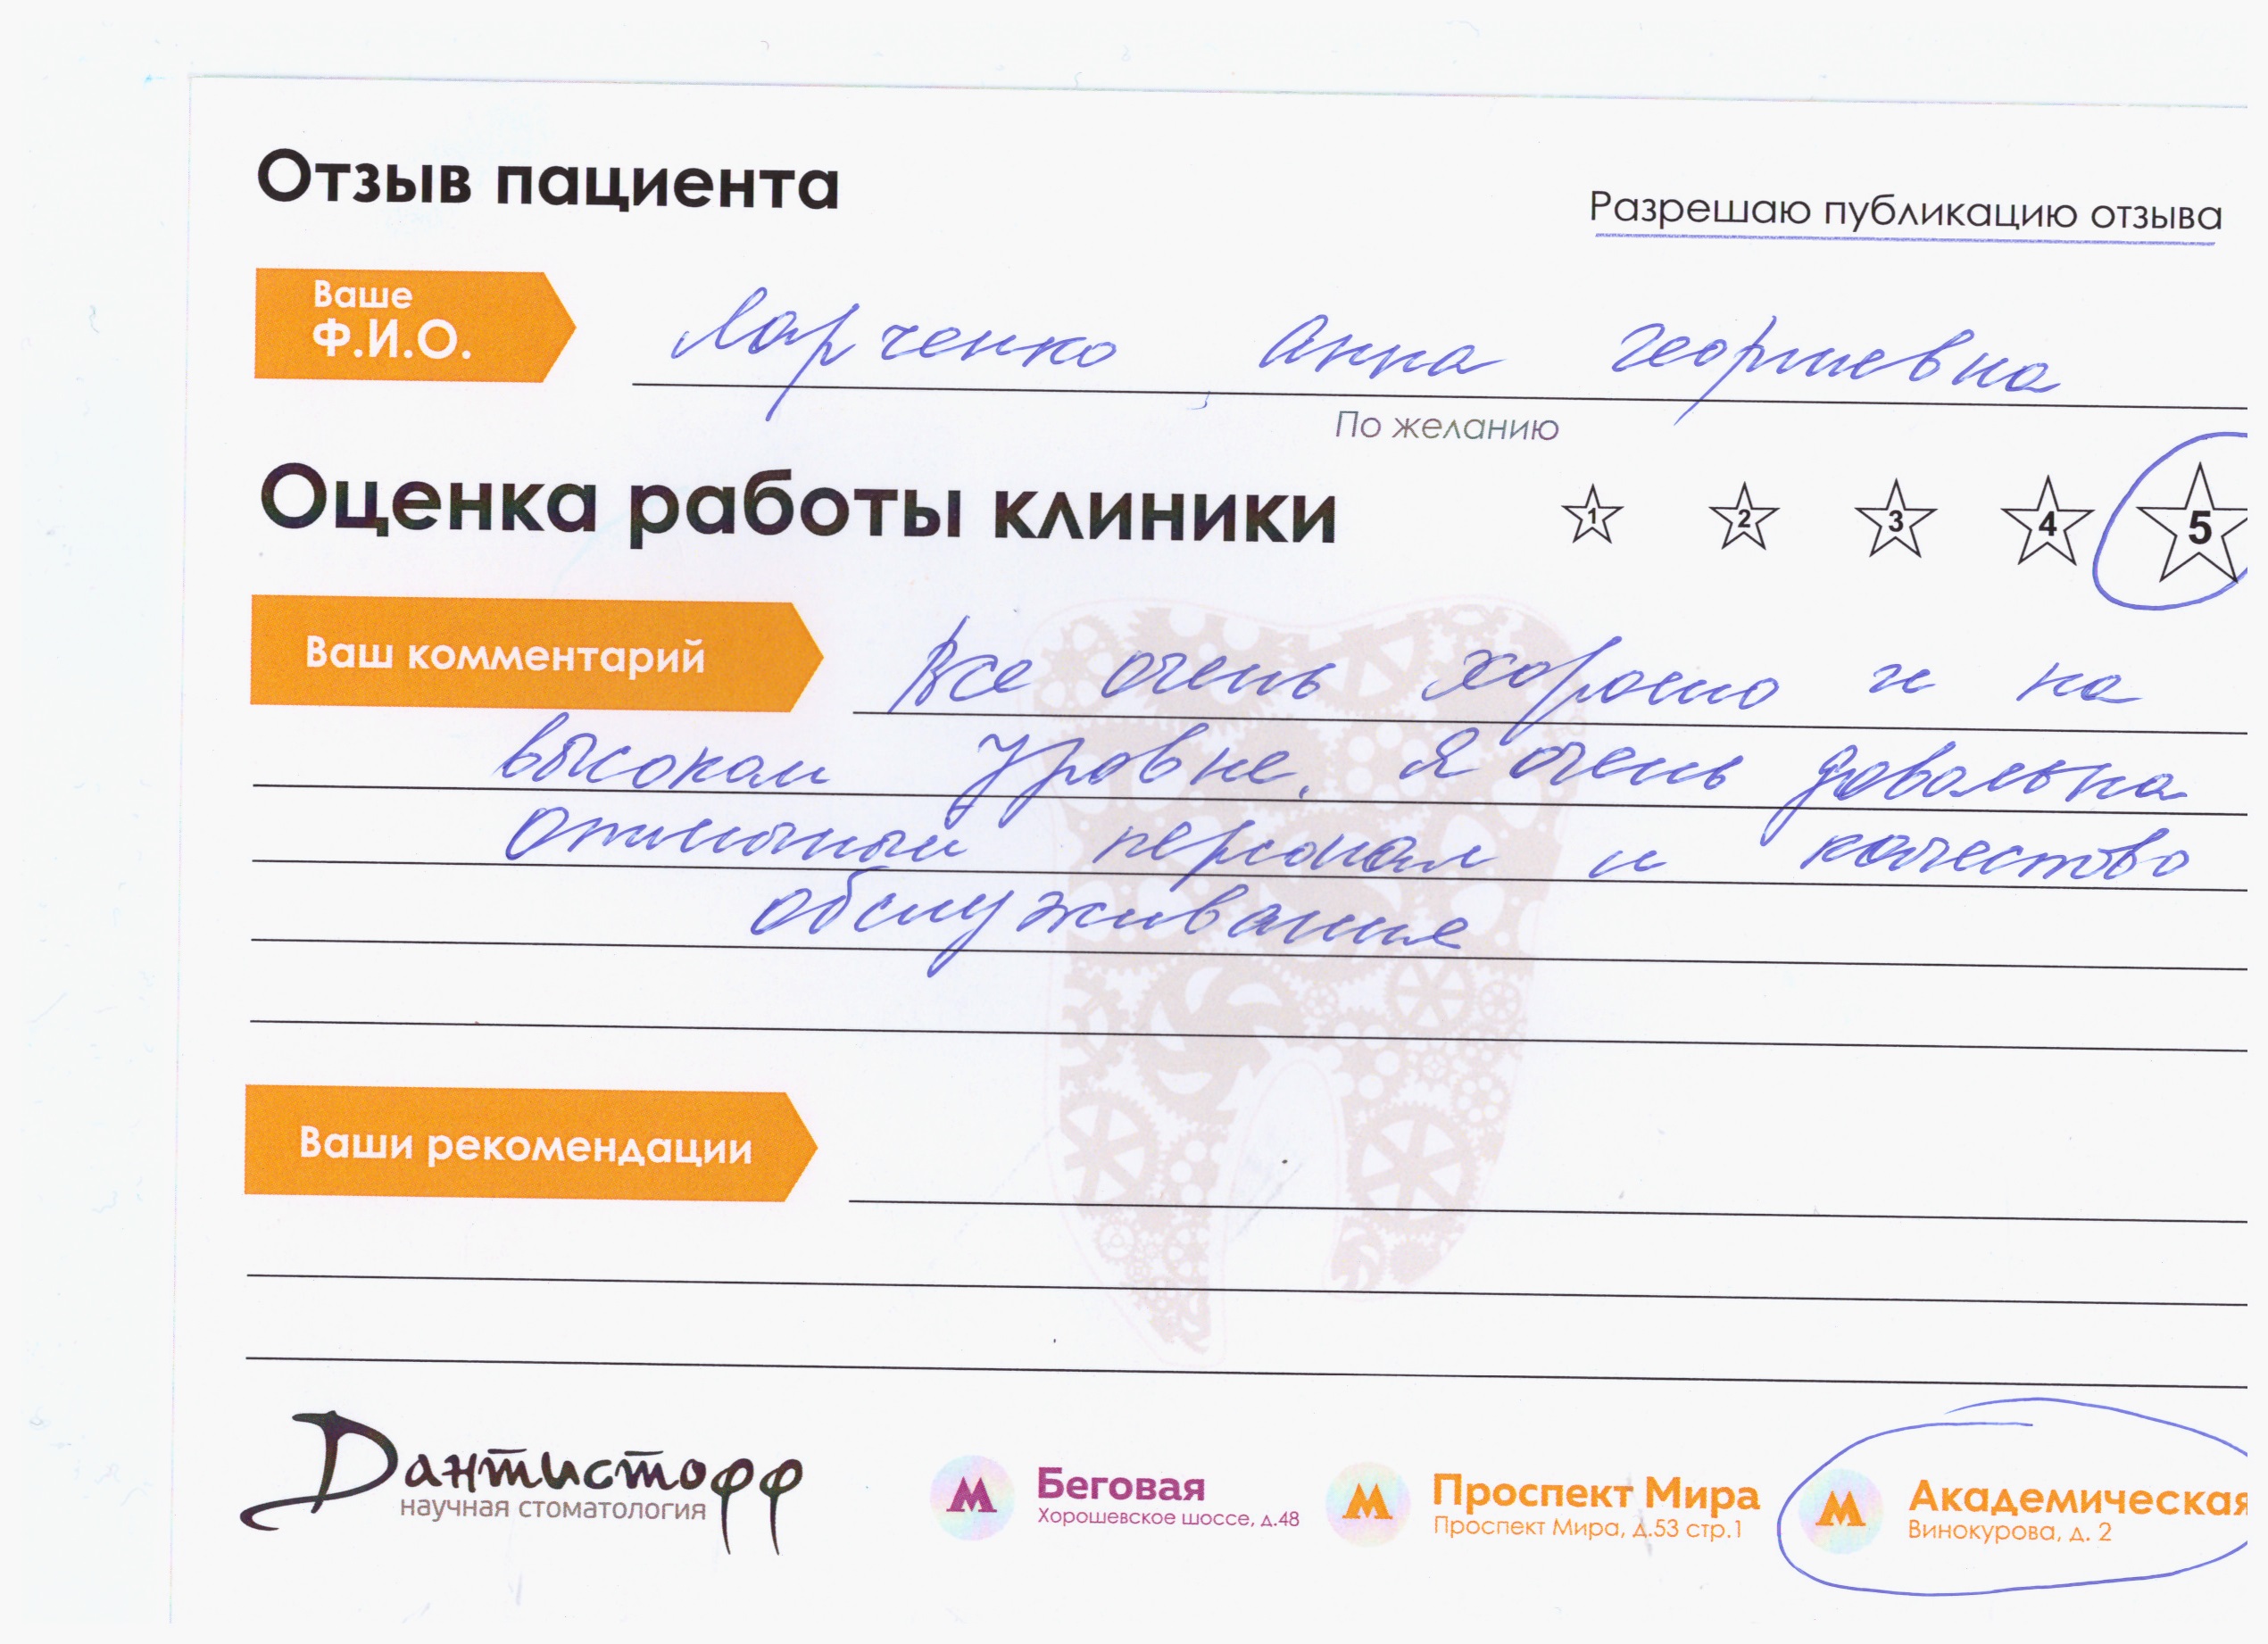 Отзыв пациента
Разрешаю публикацию отзыва
Ваше
Ф.И.О.
Ларченко Анна Георгиевна
По желанию
Оценка работы клиники
1 2 3 4 5
Ваш комментарий
Все очень хорошо и на
высоком уровне. Я очень довольна
Отличный персонал и качество
обслуживание
Ваши рекомендации
Дантистофф
научная стоматология
М Беговая
Хорошевское шоссе, д.48
М Проспект Мира
Проспект Мира, д.53 стр.1
М Академическая
Винокурова, д. 2